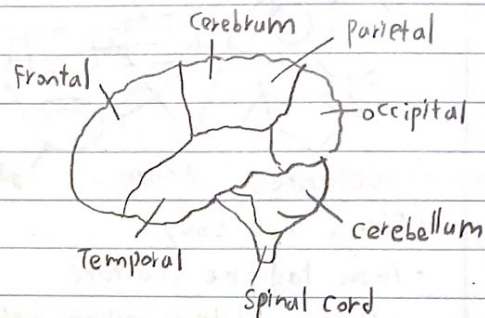 Cerebrum
Parietal
Frontal
occipital
Cerebellum
Temporal
Spinal cord